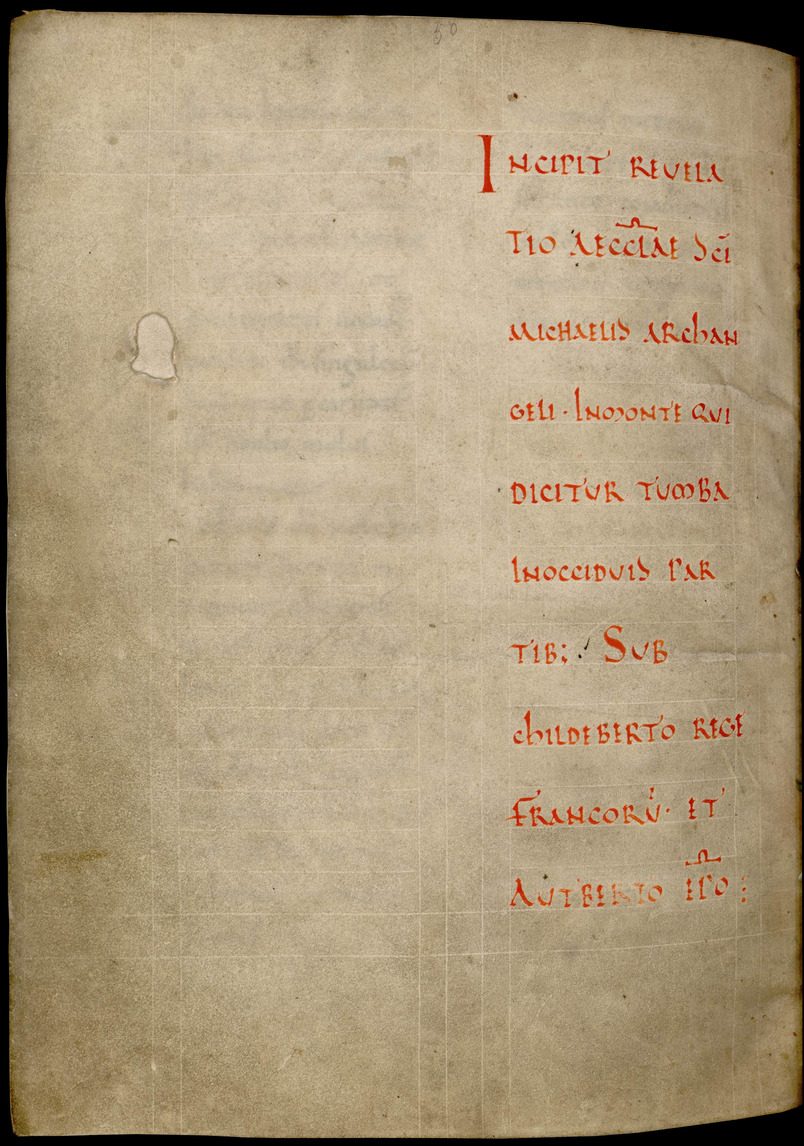 50
INCIPIT REVELA
TIO AECCLAE SCI
MICHAELIS ARChAN
GELI · INMONTE QUI
DICITUR TUMBA
INOCCIDUIS PAR
TIB; SUB
ChILDEBERTO REGE
FRANCORŪ · ET
AUTBERTO EPO :